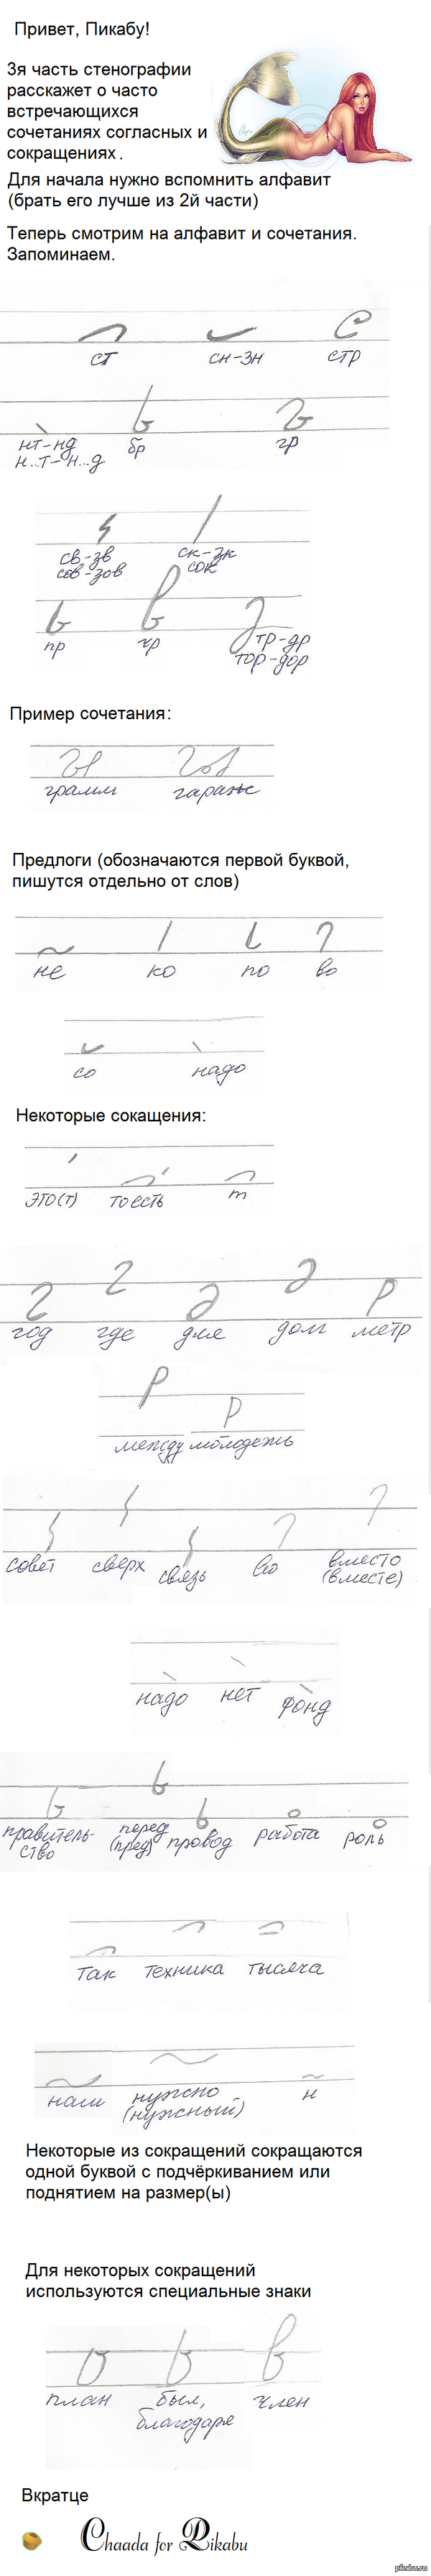 Привет, Пикабу!
3я часть стенографии
расскажет о часто
встречающихся
сочетаниях согласных и
сокращениях.
Для начала нужно вспомнить алфавит
(брать его лучше из 2й части)
Теперь смотрим на алфавит и сочетания.
Запоминаем.
ст сн-зн стр
нт-нд бр гр
н...т-н...д
св-зв ск-зк
сов-зов сок
пр чр тр-др
тор-дор
Пример сочетания:
грамм гараж
Предлоги (обозначаются первой буквой,
пишутся отдельно от слов)
не ко по во
со надо
Некоторые сокащения:
это(т) то есть т
год где для долг метр
между молодежь
совет сверх связь во вместо
(вместе)
надо нет фонд
правитель- перед провод работа роль
ство (пред)
так техника тысяча
наш нужно н
(нужный)
Некоторые из сокращений сокращаются
одной буквой с подчёркиванием или
поднятием на размер(ы)
Для некоторых сокращений
используются специальные знаки
план был, член
благодаря
Вкратце
Chaada for Pikabu
pikabu.ru